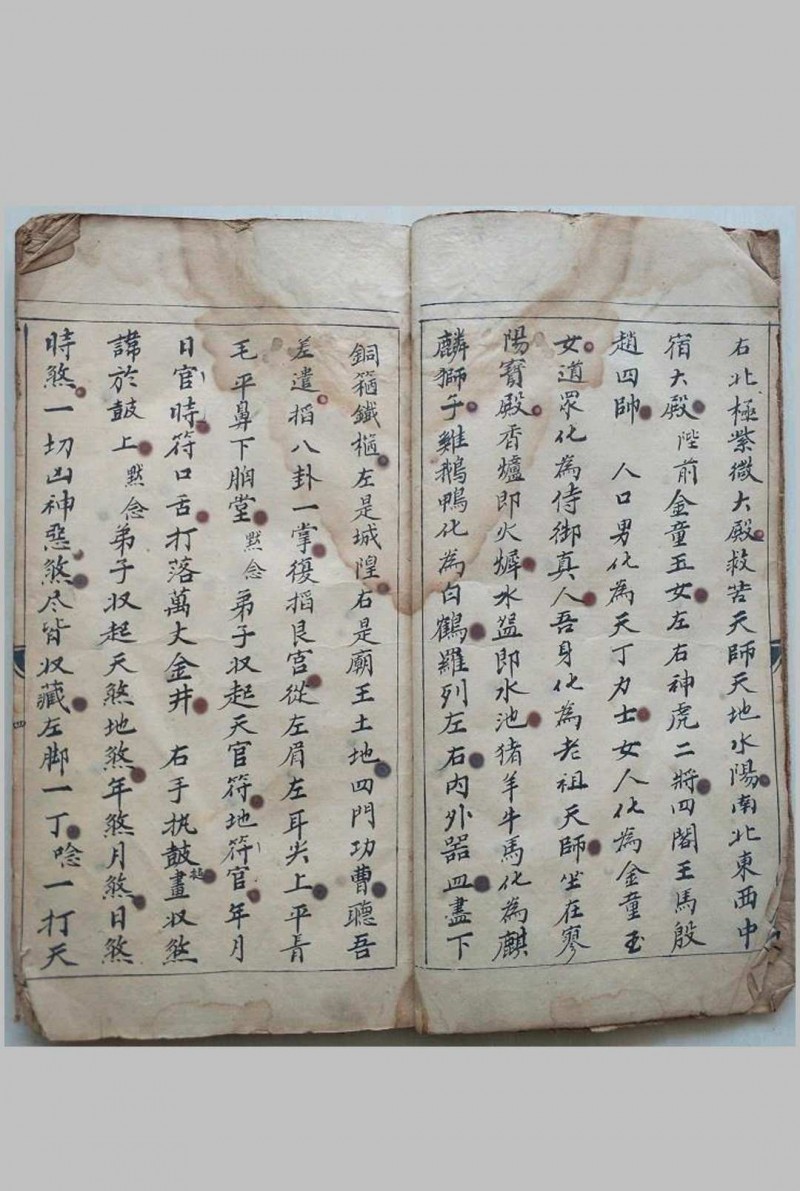 右北極紫微大殿救苦天師天地水陽南北東西中
宿大殿陛前金童玉女左右神虎二將四閣王馬殷
趙四帥人口男化為天丁力士女人化為金童玉
女道眾化為侍御真人吾身化為老祖天師坐在寥
陽寶殿香爐即火墀水盆即水池猪羊牛馬化為麒
麟獅子雞鵝鴨化為白鶴羅列左右內外器皿盡下
銅箍鐵槌左是城隍右是廟王土地四門功曹聽吾
差遣掐八卦一掌復掐艮宮從左眉左耳尖上平肩
毛平鼻下胸堂默念弟子収起天官符地符官年月
日官時符口舌打落萬丈金井右手执鼓畫収煞
諱於鼓上默念弟子収起天煞地煞年煞月煞日煞
時煞一切凶神惡煞尽皆収藏左脚一丁唸一打天
四